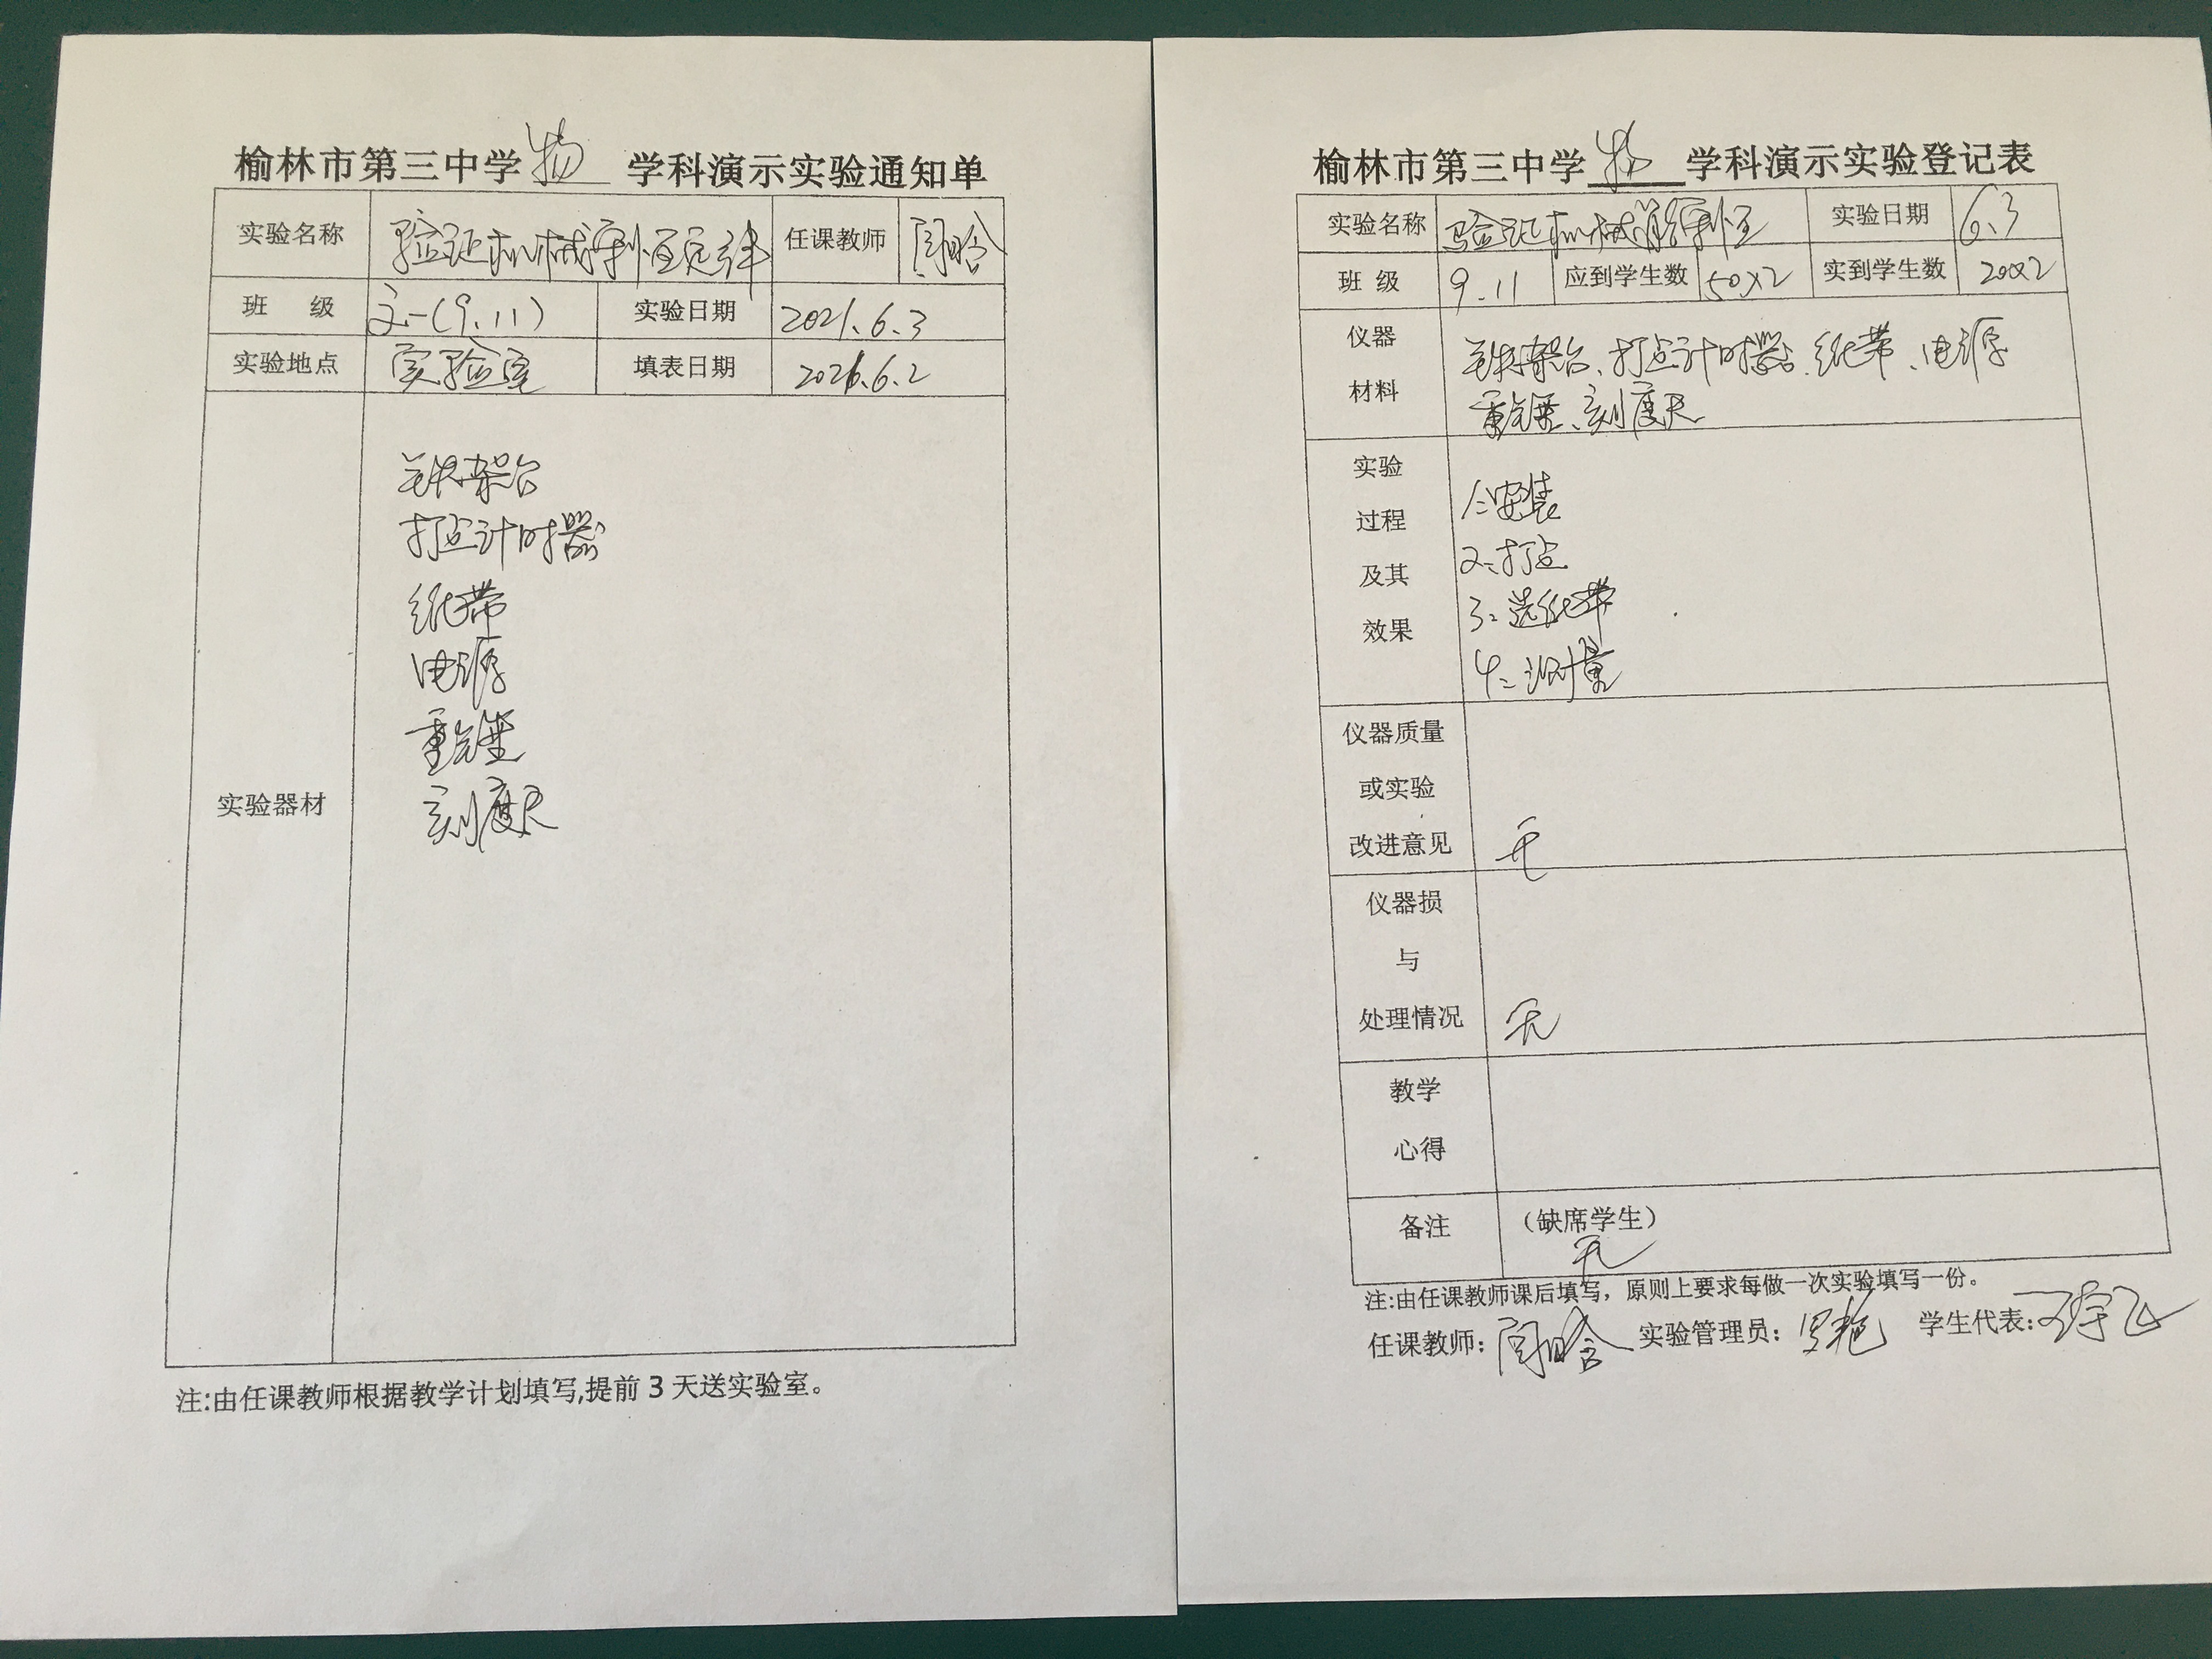 榆林市第三中学 物 学科演示实验通知单
实验名称 验证机械守恒定律 任课教师
班 级 高一(9.11) 实验日期 2021.6.3
实验地点 实验室 填表日期 2021.6.2
实验器材
铁架台
打点计时器
纸带
电源
重锤
刻度尺
注:由任课教师根据教学计划填写,提前3天送实验室。
榆林市第三中学 物 学科演示实验登记表
实验名称 验证机械能守恒 实验日期 6.3
班 级 9.11 应到学生数 50×2 实到学生数
仪器
材料
铁架台、打点计时器、纸带、电源
重锤、刻度尺
实验
过程
及其
效果
1:安装
2:打点
3:选纸带
4:测量
仪器质量
或实验
改进意见
无
仪器损
与
处理情况
无
教学
心得
备注
(缺席学生)
无
注:由任课教师课后填写,原则上要求每做一次实验填写一份。
任课教师: 实验管理员: 学生代表: